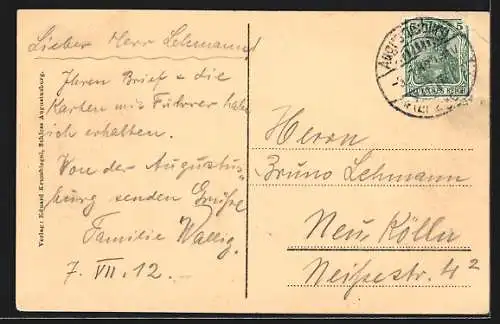 Lieber Herr Lehmann!
Ihren Brief & die
Karten mit Führer habe
ich erhalten.
Von der Augustus-
burg senden Grüße
Familie Wallig.
7. VII. 12.
Verlag: Eduard Krumbiegel, Schloss Augustusburg.
Augustusburg
5
DEUTSCHES REICH
Herrn
Bruno Lehmann
Neu Kölln
Neißestr. 4²